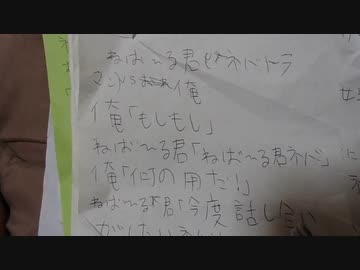 ねば〜る君とネバートラ
マンVS俺
俺「もしもし」
ねば〜る君「ねば〜る君ネバ」
俺「何の用だ！」
ねば〜る君「今度話し合い
がしたいネバ